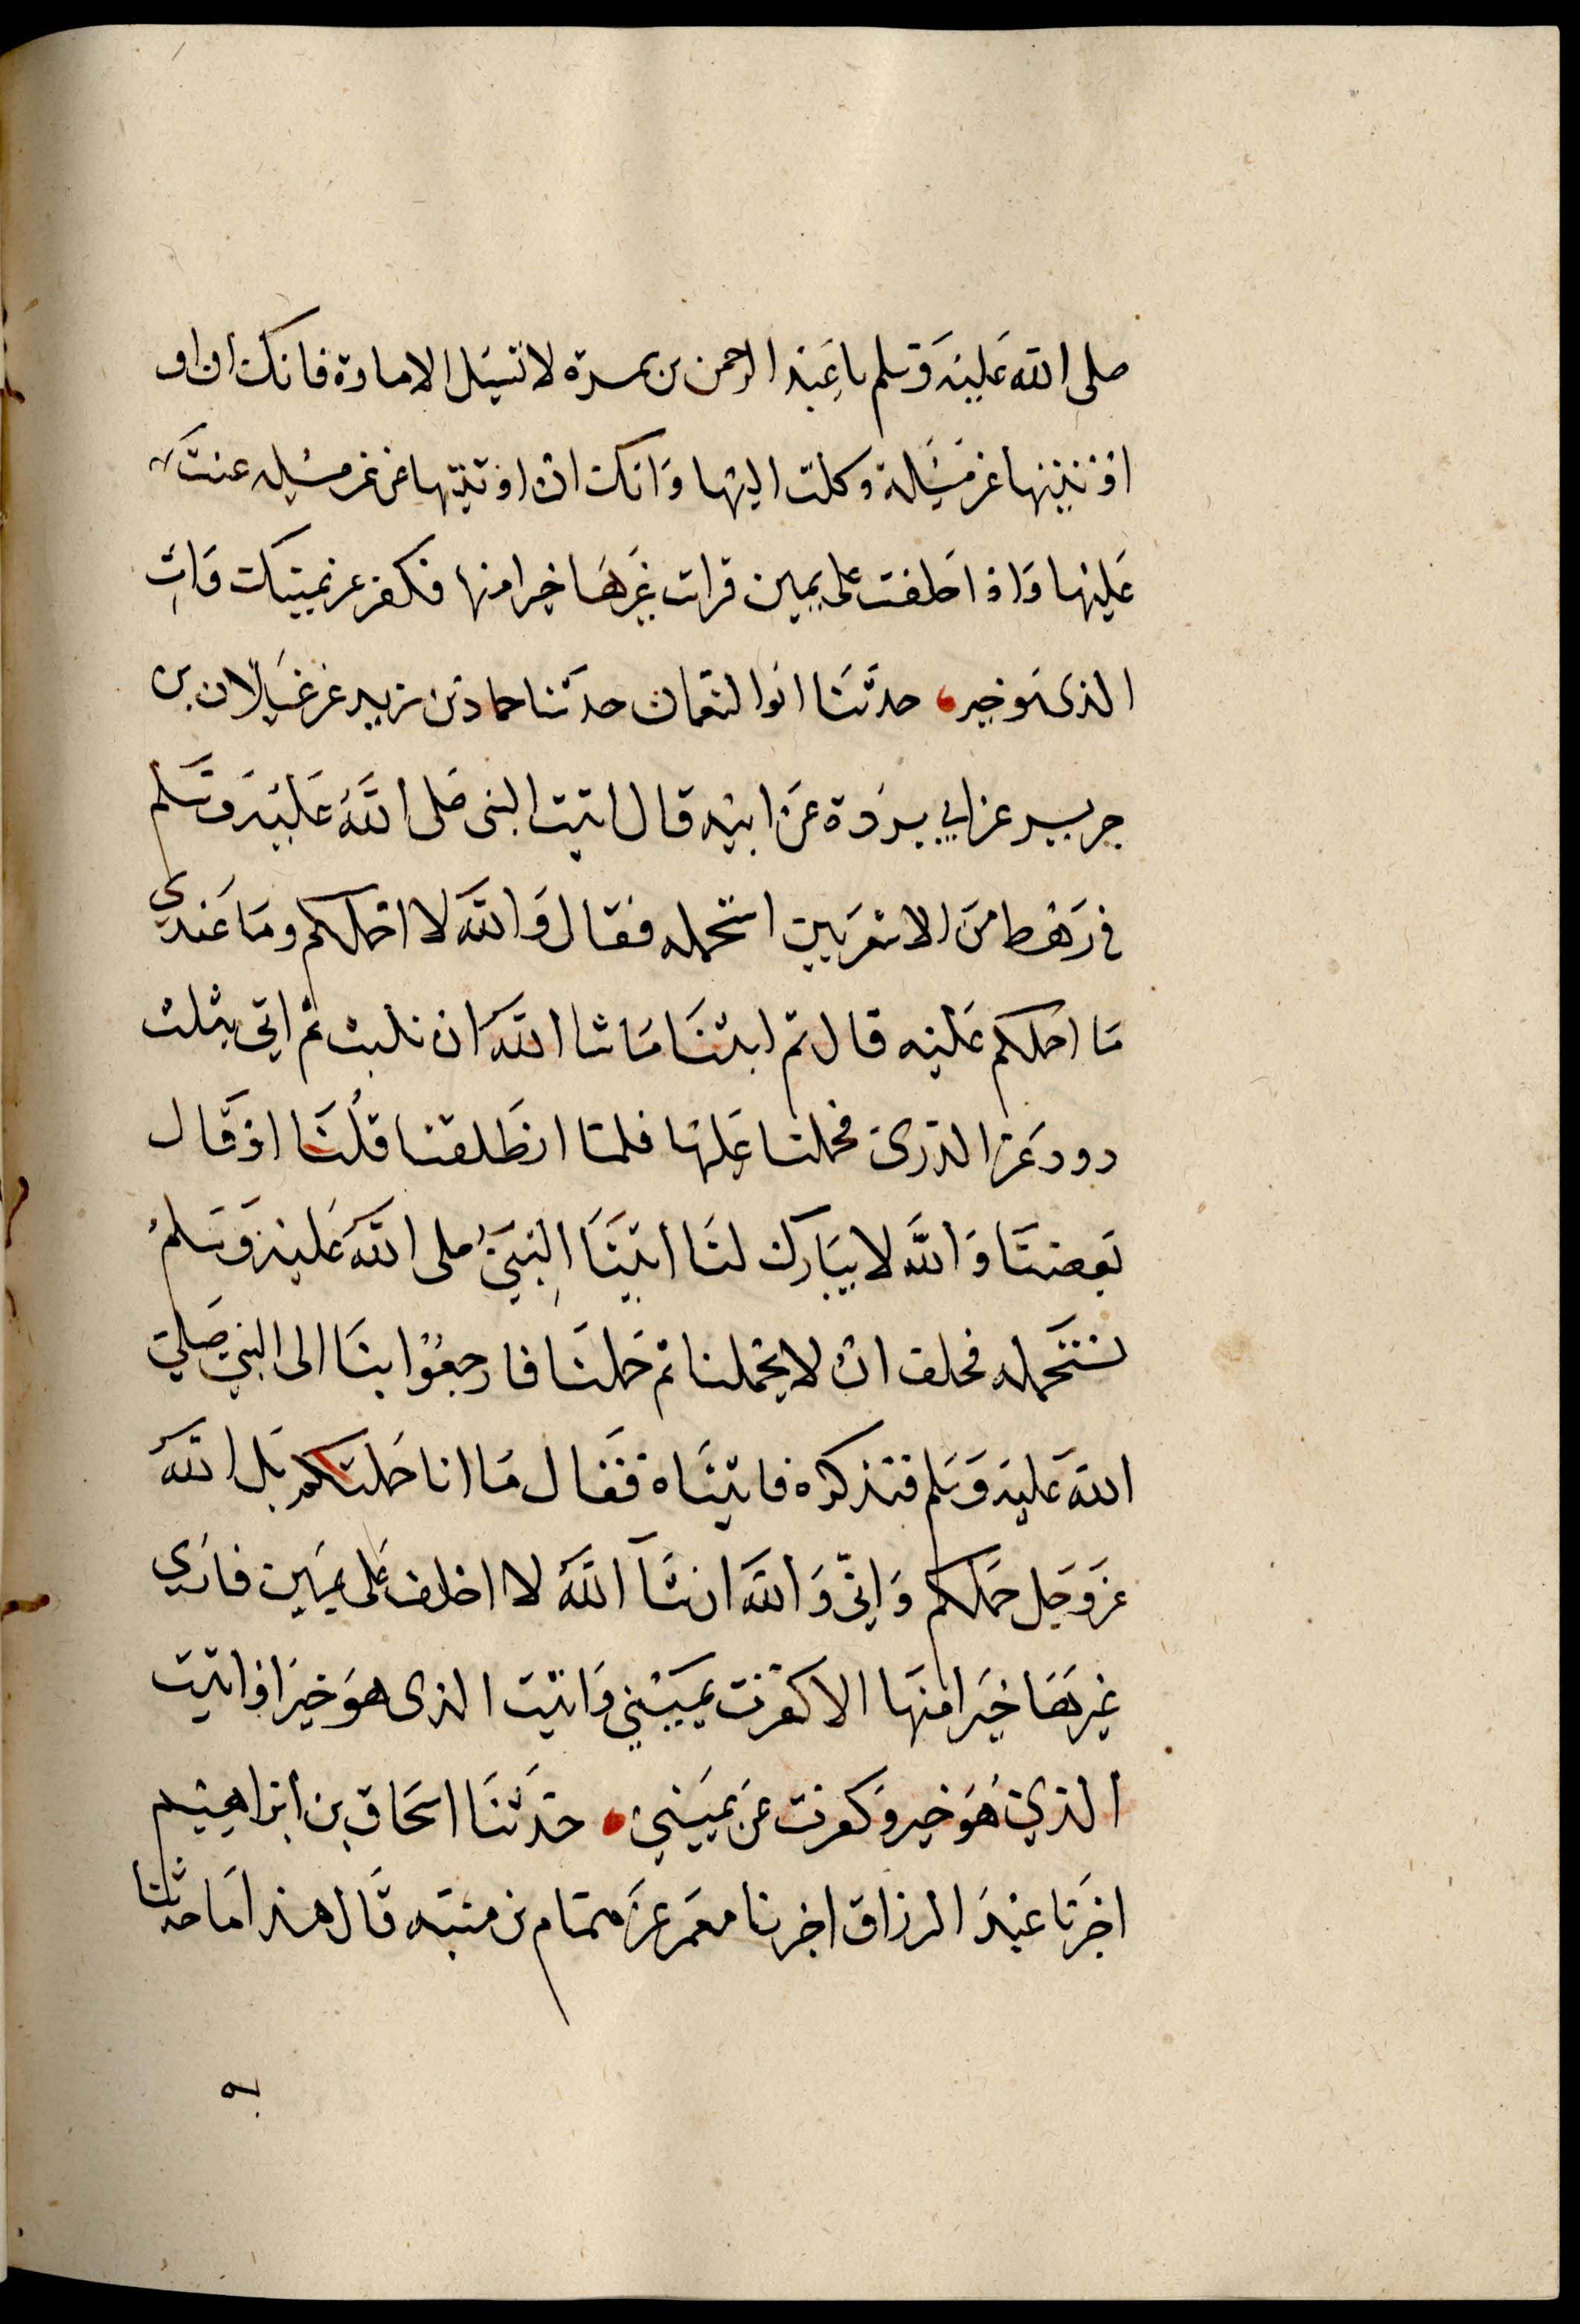 صلى الله عَليْهَ وَسَلم يا عَبْد الرحمن بن سمرة لا تسئل الامارة فانك ان او
اوْتيتها عن مسْئلة وكلت اليْها وَانك انْ اوْتيْتها عن غير مسْئله عنتَ
عَليْها وَاذا حَلفت على يمين فرات غيرهَا خيرا منها فكفر عن يمينك وَاتِ
الذى هوَ خير حدثَنَا ابوا لنعْمان حدثنا حماد بْن زيد عن غيْلان بن
جرير عن ابي بردَة عَن ابيْه قال اتيت النبى صَلى اللَّهُ عَليْهَ وَسَلم
في رَهْط منَ الاشعَريين استحمله فقال وَاللَّهَ لا احْملكم ومَا عَندي
مَا احملكم عَليْه قال ثم لبثنَا مَا شا اللَّهَ ان نلبث ثم اتى بثلث
دود غر الذرى فحملنا عَليهَا فلما انطَلقنا قلْنَا اوْ قَال
بَعضنَا وَاللَّه لا يبَارك لنَا اتيْنَا النبيَّ صلى اللَّهَ عَليهَ وَسَلمْ
نستَحمله فحلف انْ لا يحْملنا ثم حَملنَا فارجعُوْا بنَا الى النبي صَلى
اللهَ عَليهَ وَسَلم فنذكره فاتيْنَاه فقَال مَا انا حَملتكم بَل اللَّهَ
عز وَجَل حَملكم وَانّى وَاللَّهَ ان شَآ اللَّهَ لا احْلف عَلى يمَين فارَى
غيرهَا خيَرا منهَا الا كفرْت يميْني وَاتيْت الذى هوَ خيَر اوْ اتيْت
الذي هُوَ خير وَكفرت عَن يميَني حَدثَنَا اسحَاق بن ابرَاهيْم
اخبَرنا عَبْدَ الرزاق اخبرنا معمَر عنَ همَّام بن منبَه قَال هذا مَا حدثنَا
به